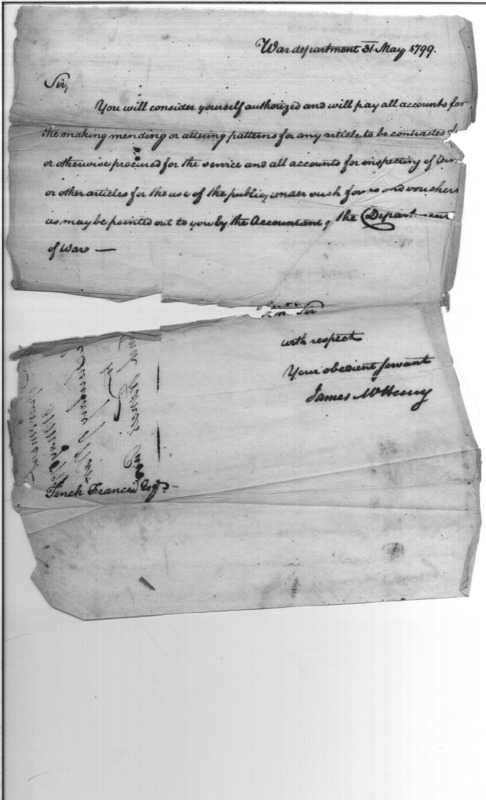 War department 31 May 1799.
Sir,
You will consider yourself authorized and will pay all accounts for
the making mending or altering patterns for any article to be contracted for
or otherwise procured for the service and all accounts for inspecting of Arms
or other articles for the use of the public, under such forms and vouchers
as may be pointed out to you by the Accountant of the Department
of War —
Sir
with respect
Your obedient servant
James McHenry
Tench Francis Esqr.